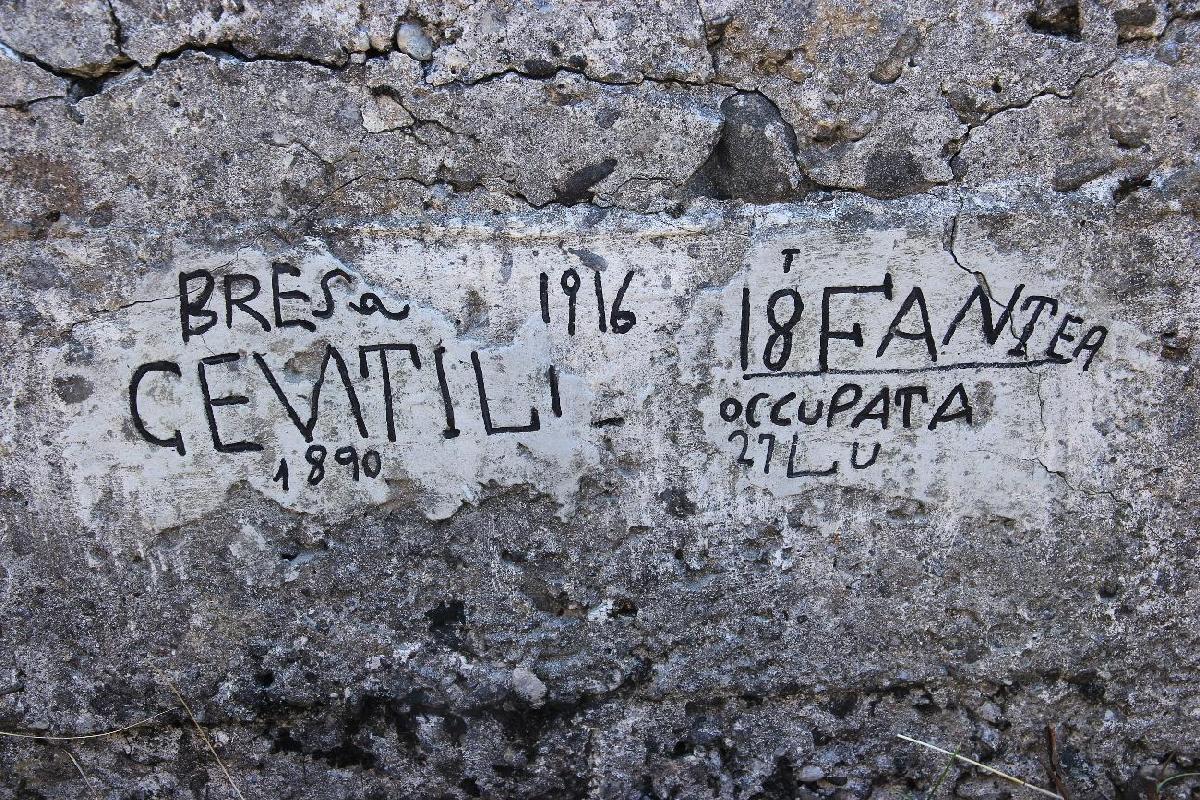 BRESa 1916
GEVATILI
1890
18T FANTEA
OCCUPATA
27 LU